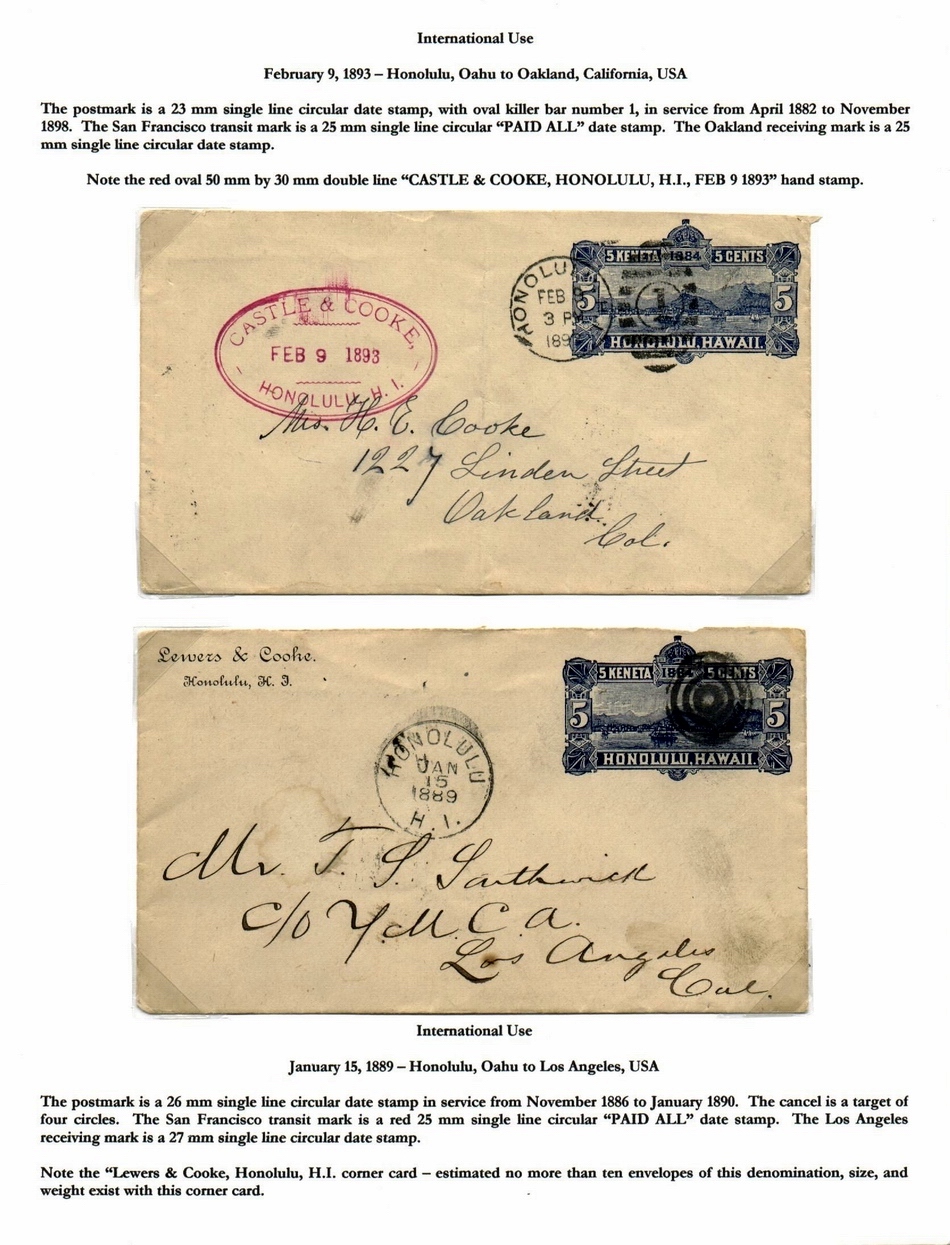 International Use
February 9, 1893 – Honolulu, Oahu to Oakland, California, USA
The postmark is a 23 mm single line circular date stamp, with oval killer bar number 1, in service from April 1882 to November
1898. The San Francisco transit mark is a 25 mm single line circular “PAID ALL” date stamp. The Oakland receiving mark is a 25
mm single line circular date stamp.
Note the red oval 50 mm by 30 mm double line “CASTLE & COOKE, HONOLULU, H.I., FEB 9 1893” hand stamp.
CASTLE & COOKE,
FEB 9 1893
HONOLULU, H. I.
HONOLU
FEB
3 PM
189
1
5 KENETA 1884 5 CENTS
5 5
HONOLULU, HAWAII.
Mrs. H. E. Cooke
1227 Linden Street
Oakland
Cal.
Lewers & Cooke.
Honolulu, H. I.
5 KENETA 1884 5 CENTS
5 5
HONOLULU, HAWAII.
HONOLULU
JAN
15
1889
H. I.
Mr. T. S. Southwick
c/o Y.M.C.A.
Los Angeles
Cal.
International Use
January 15, 1889 – Honolulu, Oahu to Los Angeles, USA
The postmark is a 26 mm single line circular date stamp in service from November 1886 to January 1890. The cancel is a target of
four circles. The San Francisco transit mark is a red 25 mm single line circular “PAID ALL” date stamp. The Los Angeles
receiving mark is a 27 mm single line circular date stamp.
Note the “Lewers & Cooke, Honolulu, H.I. corner card – estimated no more than ten envelopes of this denomination, size, and
weight exist with this corner card.